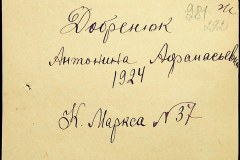 281
292
Добренюк
Антонина Афанасьевна
1924
К. Маркса № 37